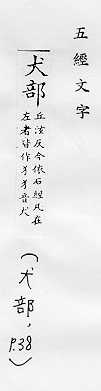 五經文字
犬部
丘泫反今依石經凡在
左者皆作犭犭音犬
(犬部, P.38)